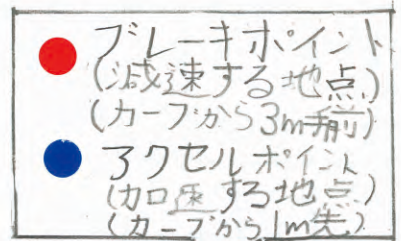 ブレーキポイント
(減速する地点)
(カーブから3m手前)
アクセルポイント
(加速する地点)
(カーブから1m先)